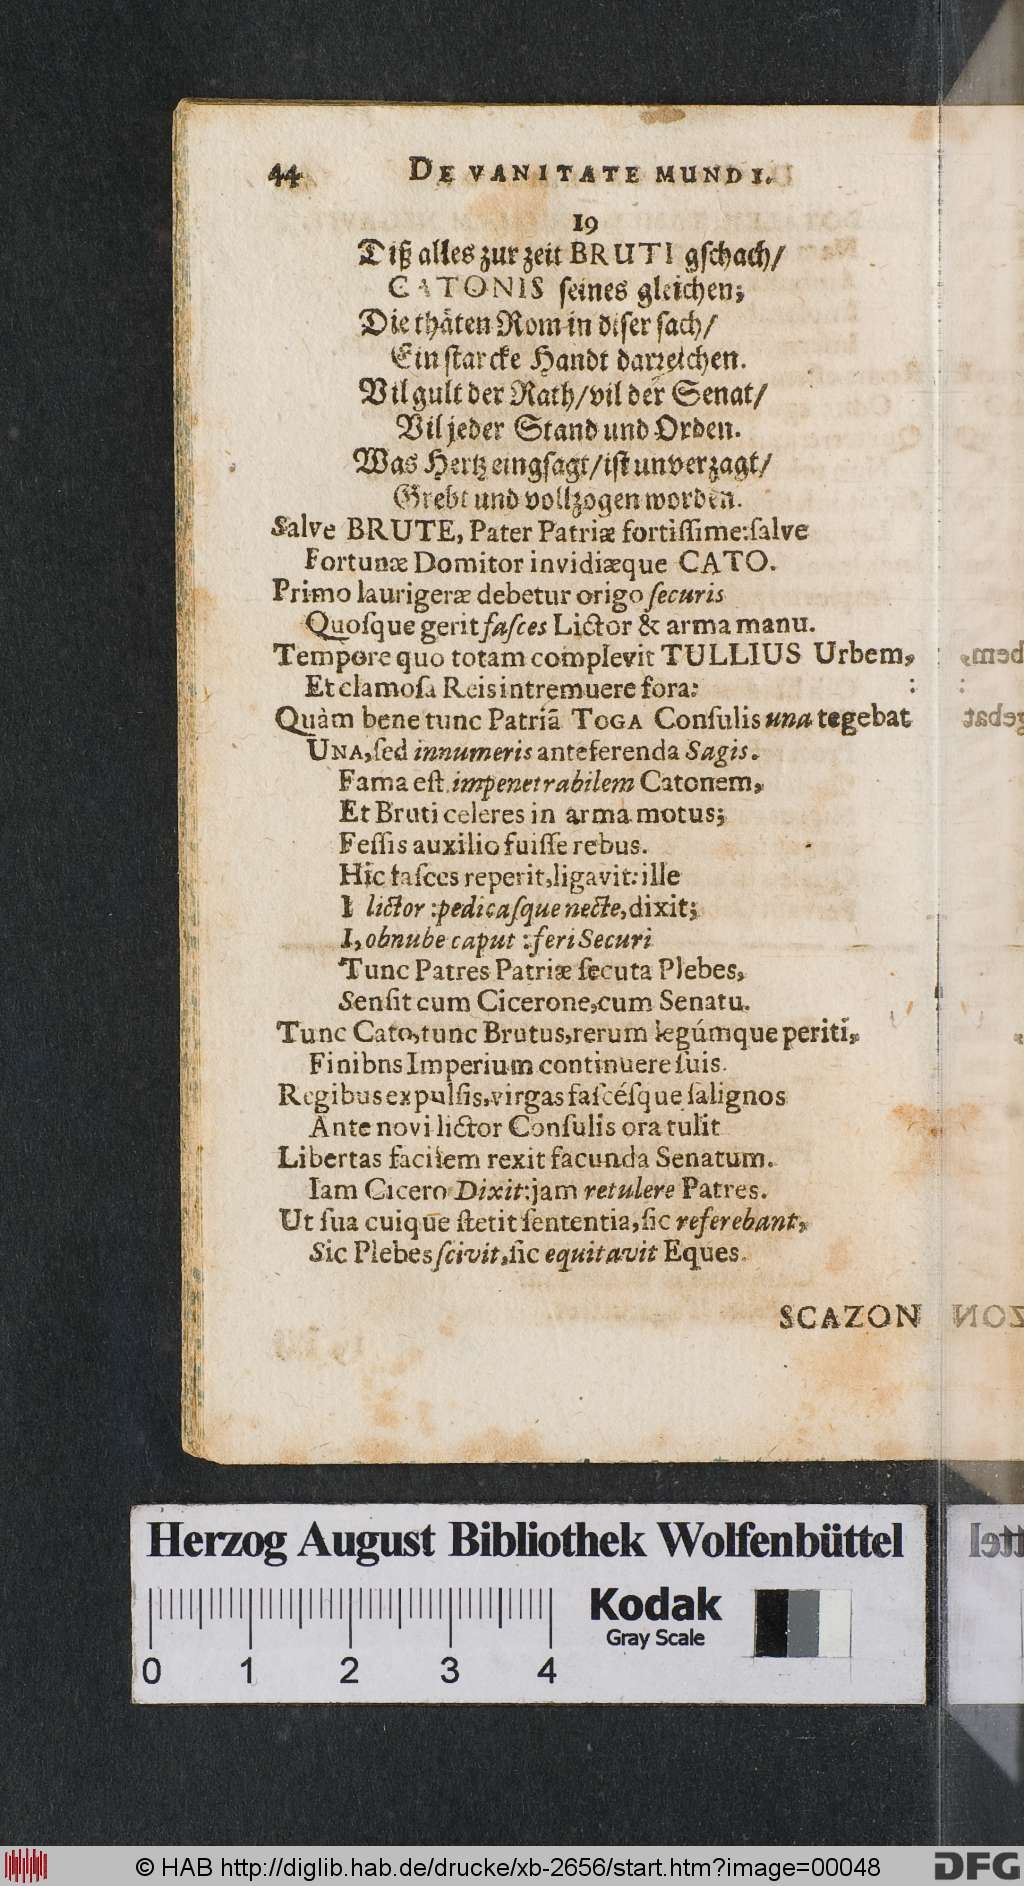 44 DE VANITATE MUNDI.
19
Diß alles zur zeit BRUTI gschach/
CATONIS seines gleichen;
Die thäten Rom in diser sach/
Ein starcke Handt darreichen.
Vil gult der Rath/ vil der Senat/
Vil jeder Stand und Orden.
Was Hertz eingsagt/ ist unverzagt/
Grebt und vollzogen worden.
Salve BRUTE, Pater Patriæ fortiſſime: ſalve
Fortunæ Domitor invidiæque CATO.
Primo laurigeræ debetur origo ſecuris
Quoſque gerit faſces Lictor & arma manu.
Tempore quo totam complevit TULLIUS Urbem,
Et clamoſa Reis intremuere fora:
Quàm bene tunc Patriã TOGA Conſulis una tegebat
UNA, ſed innumeris anteferenda Sagis.
Fama eſt impenetrabilem Catonem,
Et Bruti celeres in arma motus;
Feſſis auxilio fuiſſe rebus.
Hic faſces reperit, ligavit: ille
I lictor: pedicaſque necte, dixit;
I, obnube caput: feri Securi
Tunc Patres Patriæ ſecuta Plebes,
Senſit cum Cicerone, cum Senatu.
Tunc Cato, tunc Brutus, rerum legúmque periti,
Finibns Imperium continuere ſuis.
Regibus expulſis, virgas faſcéſque ſalignos
Ante novi lictor Conſulis ora tulit
Libertas facilem rexit facunda Senatum.
Iam Cicero Dixit: jam retulere Patres.
Ut ſua cuique ſtetit ſententia, ſic referebant,
Sic Plebes ſcivit, ſic equitavit Eques.
SCAZON
Herzog August Bibliothek Wolfenbüttel
Kodak
Gray Scale
0 1 2 3 4
© HAB http://diglib.hab.de/drucke/xb-2656/start.htm?image=00048
DFG